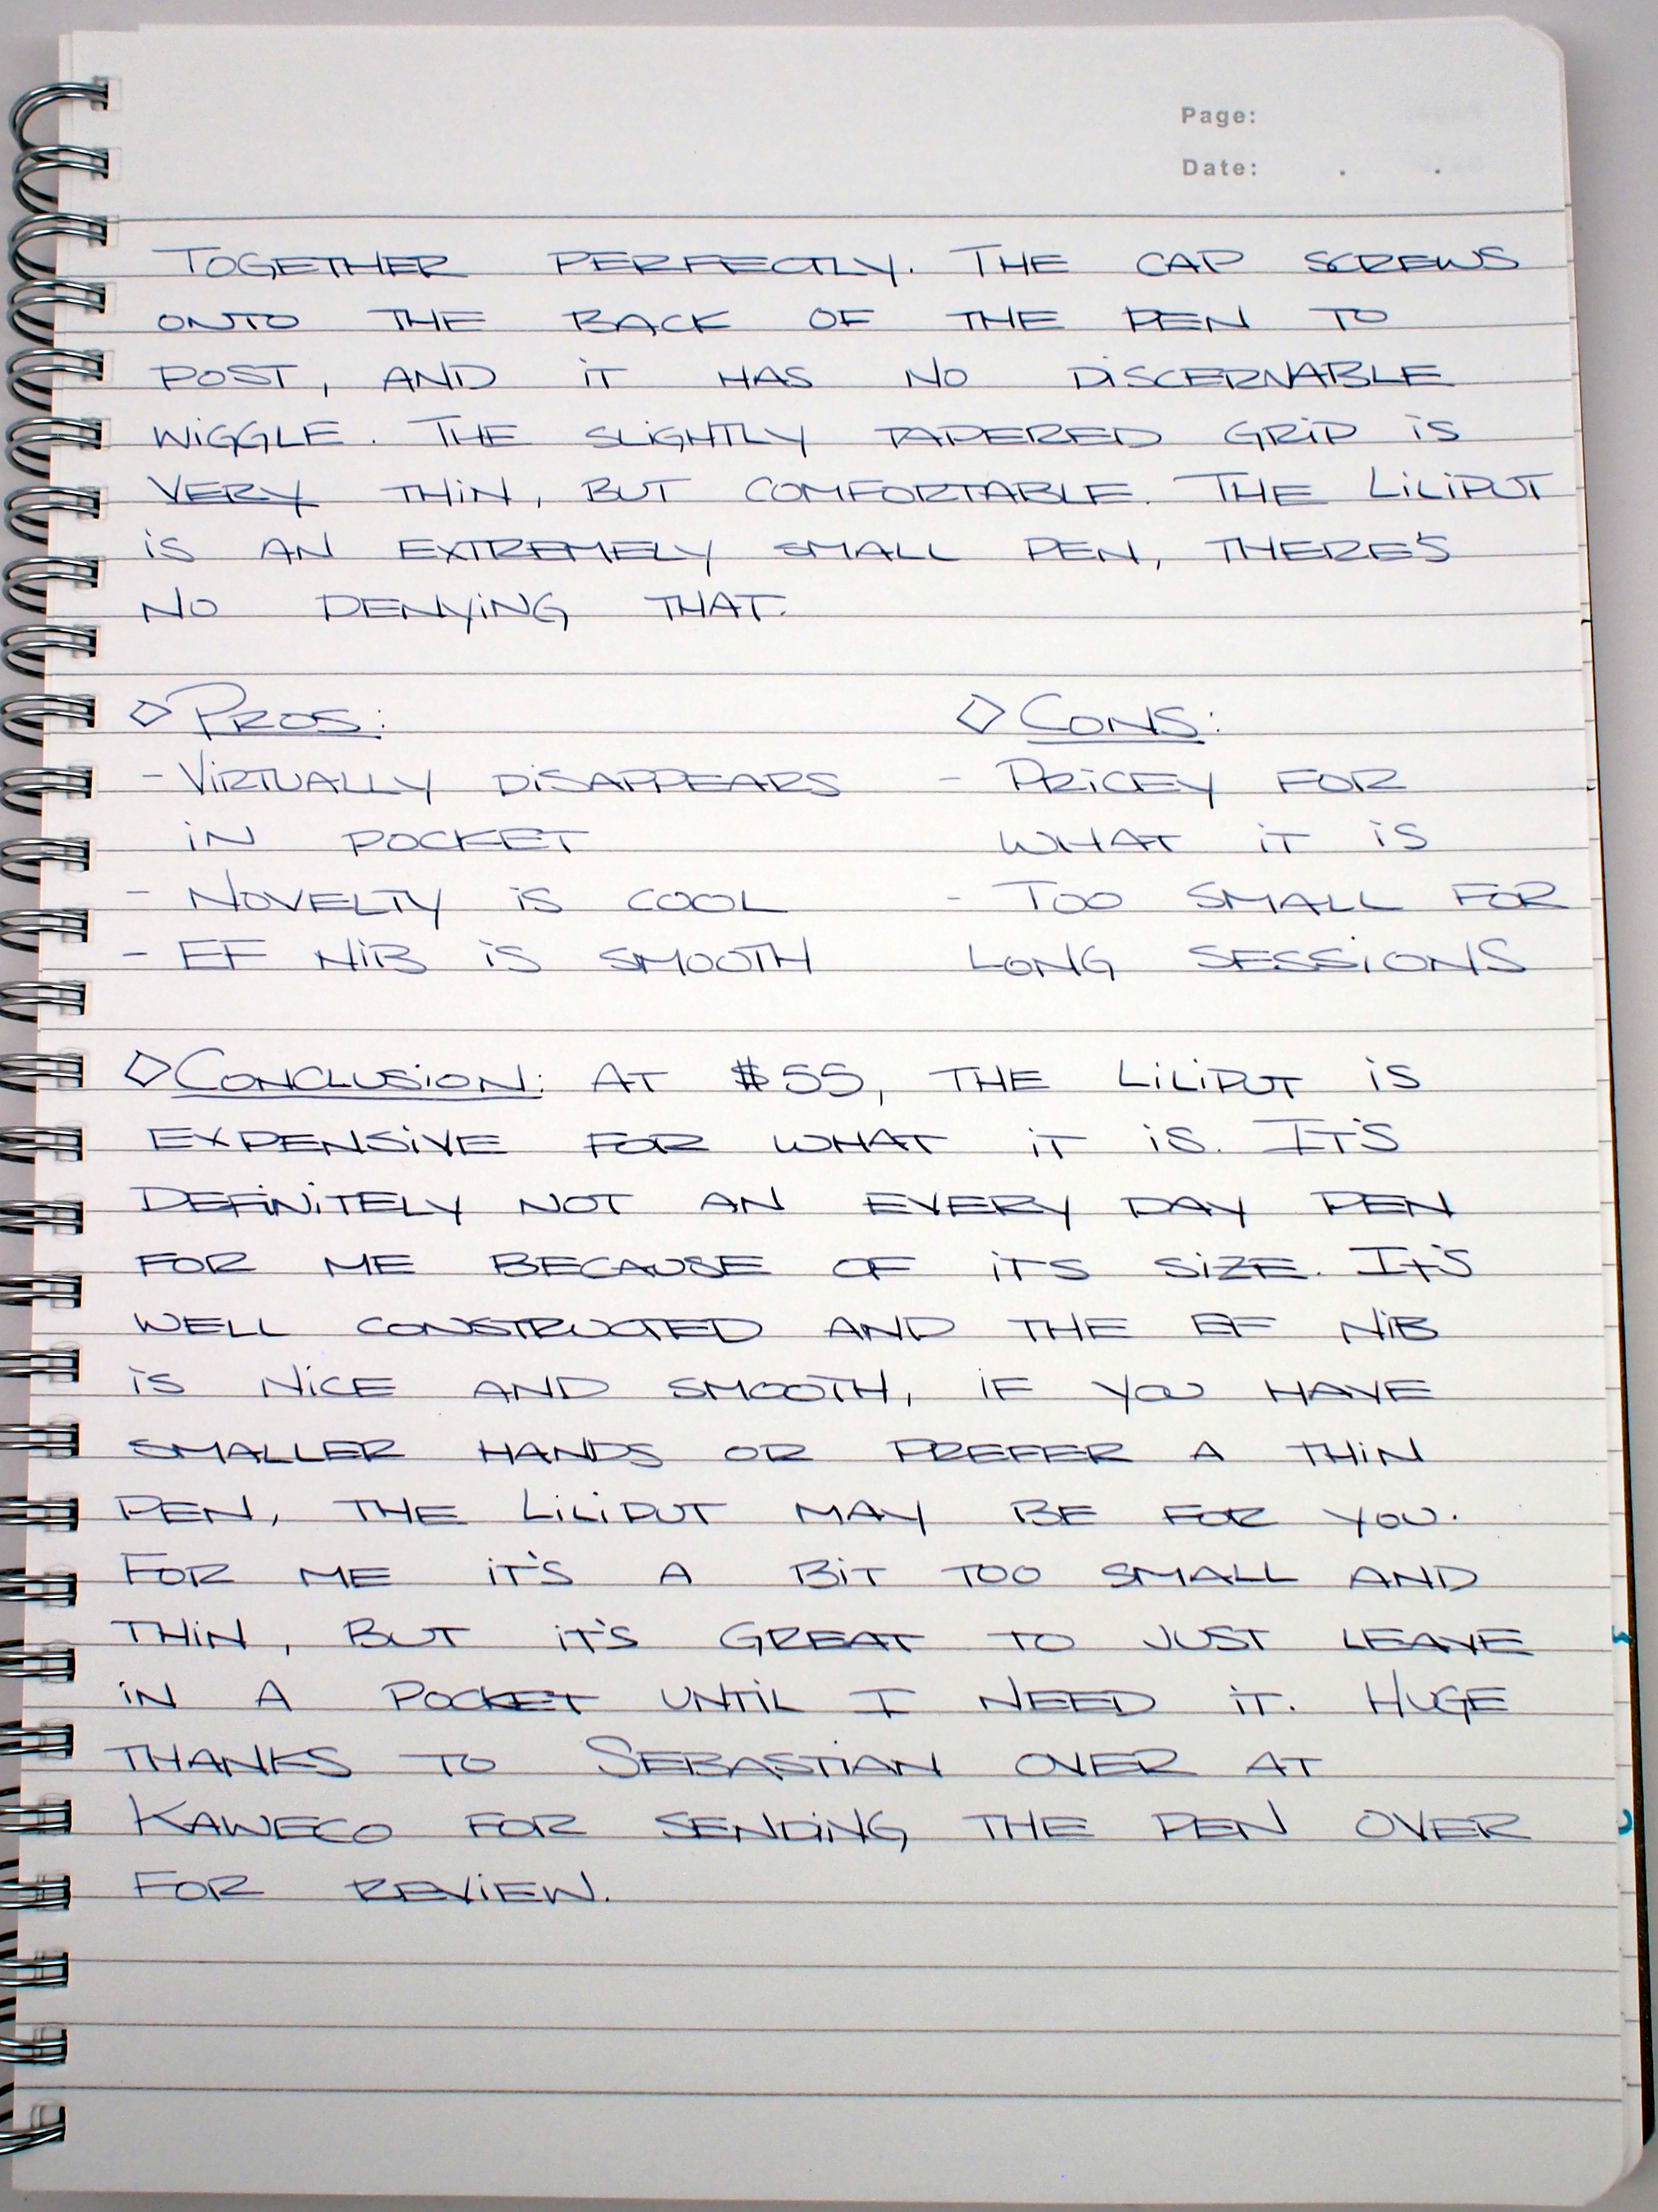 Page:
Date: . .
TOGETHER PERFECTLY. THE CAP SCREWS
ONTO THE BACK OF THE PEN TO
POST, AND iT HAS NO DiSCERNABLE
WiGGLE. THE SLiGHTLY TAPERED GRiP iS
VERY THiN, BUT COMFORTABLE. THE LiLiPUT
iS AN EXTREMELY SMALL PEN, THERE'S
NO DENYiNG THAT.
◇ PROS:
- ViRTUALLY DiSAPPEARS
iN POCKET
- NOVELTY iS COOL
- EF NiB iS SMOOTH
◇ CONS:
- PRiCEY FOR
WHAT iT iS
- TOO SMALL FOR
LONG SESSiONS
◇ CONCLUSiON: AT $55, THE LiLiPUT iS
EXPENSiVE FOR WHAT iT iS. IT'S
DEFiNiTELY NOT AN EVERY DAY PEN
FOR ME BECAUSE OF iTS SiZE. IT'S
WELL CONSTRUCTED AND THE EF NiB
iS NiCE AND SMOOTH, iF YOU HAVE
SMALLER HANDS OR PREFER A THiN
PEN, THE LiLiPUT MAY BE FOR YOU.
FOR ME iT'S A BiT TOO SMALL AND
THiN, BUT iT'S GREAT TO JUST LEAVE
iN A POCKET UNTiL I NEED iT. HUGE
THANKS TO SEBASTiAN OVER AT
KAWECO FOR SENDiNG THE PEN OVER
FOR REViEW.